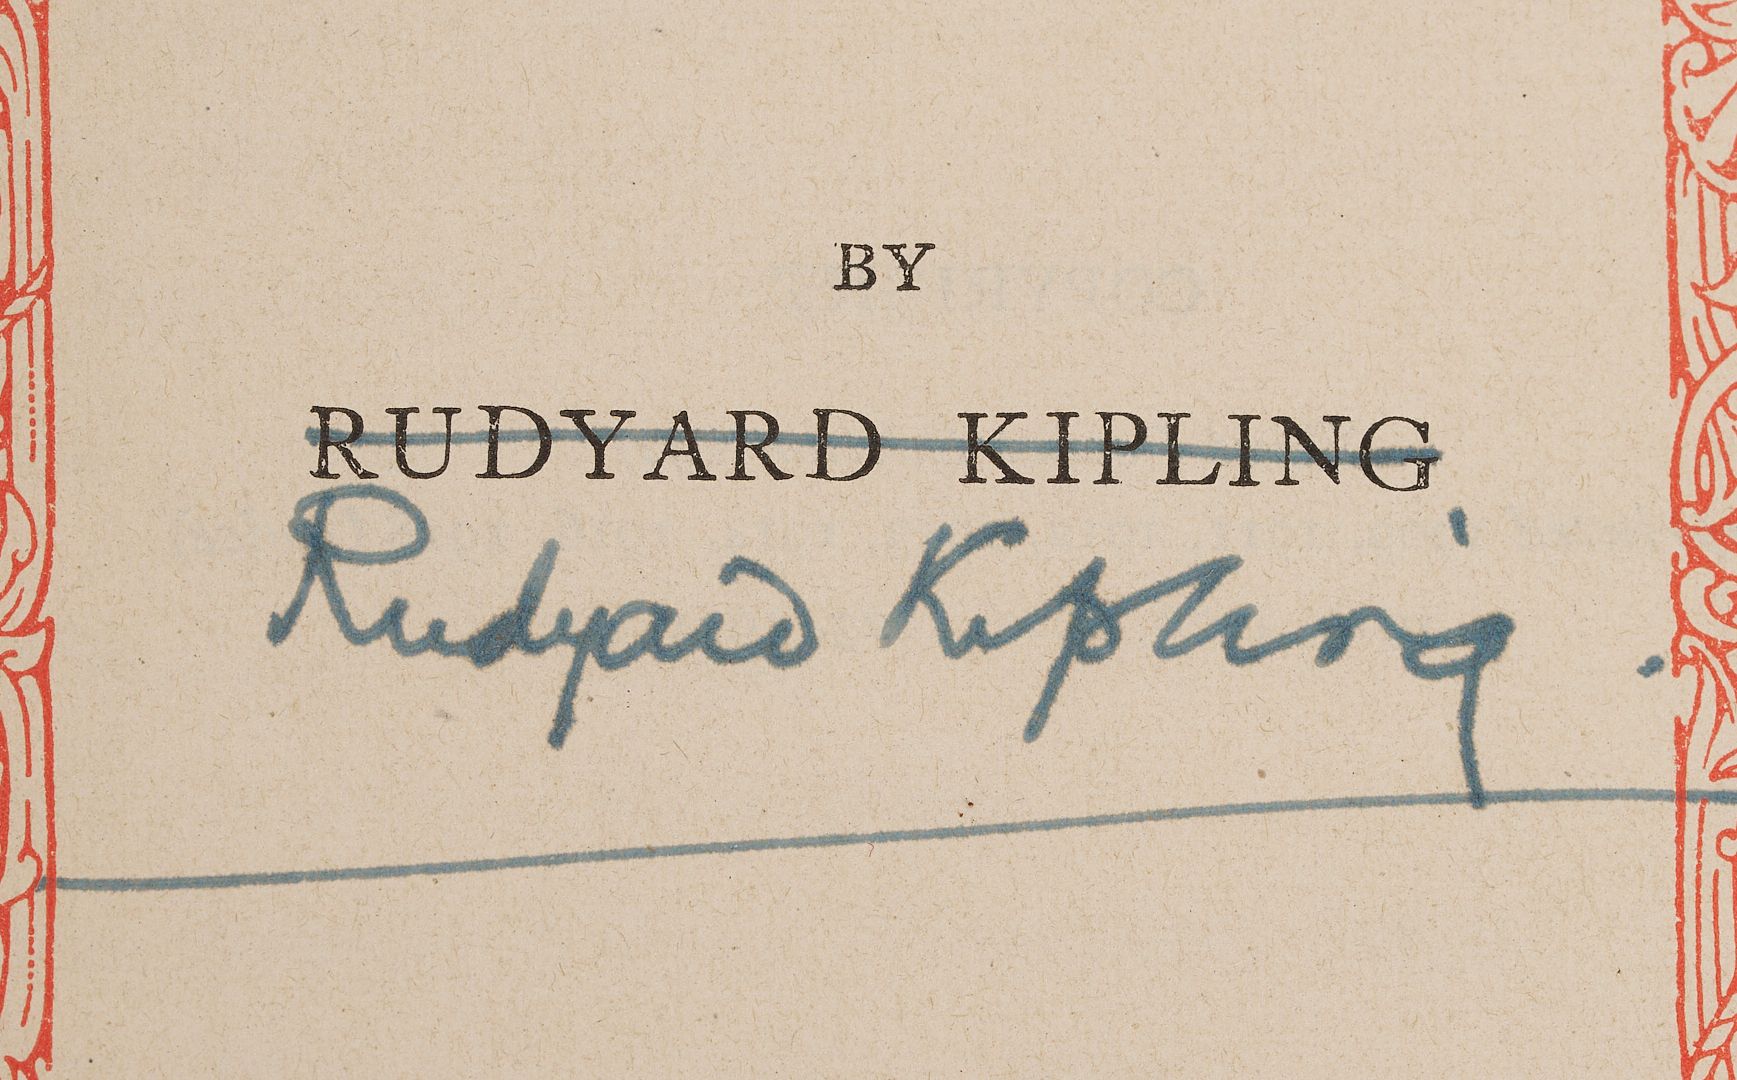 BY
RUDYARD KIPLING
Rudyard Kipling.